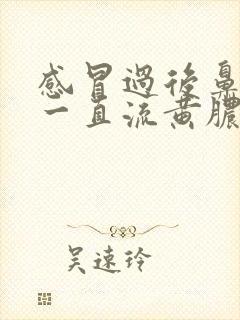 感冒過後鼻
一直流黃膿
吴速玲